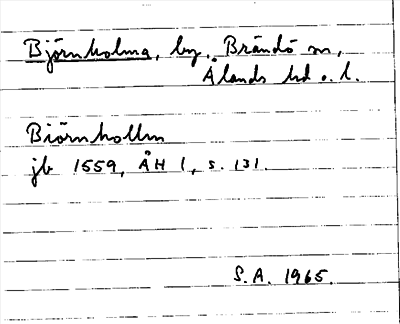 Björnholma, by, Brändö sn,
Ålands hd o. l.
Biörnhollm
jb 1559, ÅH 1, s. 131.
S.A. 1965.